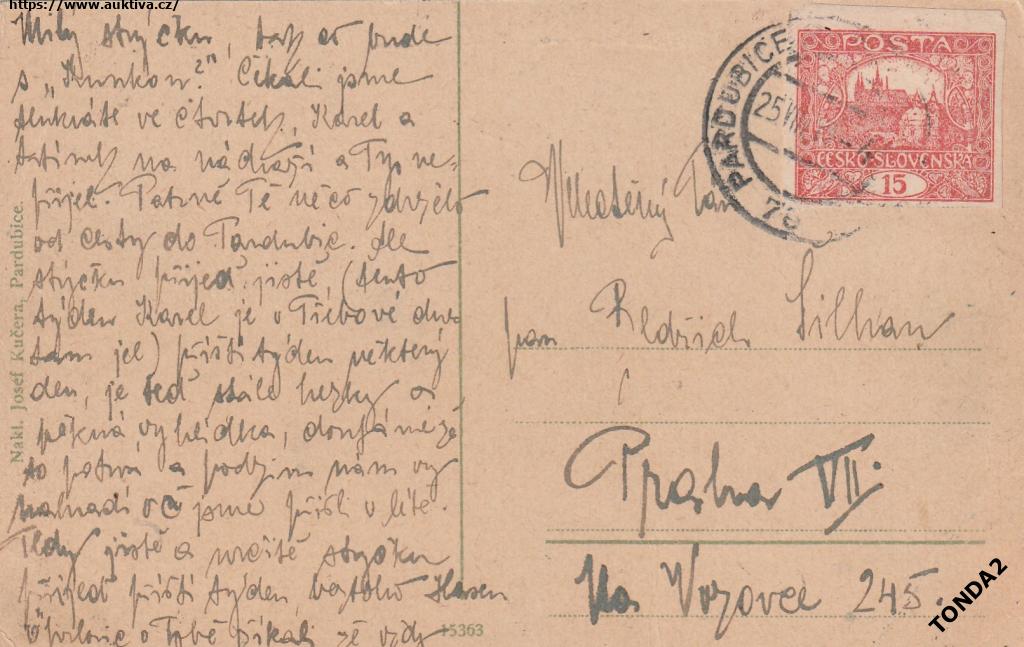 https://www.auktiva.cz/
Milý strýčku, tak co bude
s „Kunkou?" Čekali jsme
ve čtvrtek, Karel a
na nádraží a Ty ne-
přijel. Patrně Tě něco zdrželo
od cesty do Pardubic. Ale
strýčku přijeď jistě, (tento
týden Karel je v Třebové
tam jel) příští týden některý
den, je teď stále hezky a
pěkná vyhlídka, doufáme že
to potrvá a podzim nám vy
nahradí oč jsme přišli v létě.
Tedy jistě a určitě strýčku
přijeď příští týden,
o Tobě říkali že vždy
Nakl. Josef Kučera, Pardubice.
15363
PARDUBICE
25 VIII
POŠTA
ČESKO·SLOVENSKÁ
15
Vzácný Pan
pan Bedřich Silhan
Praha VII.
Na Vozovce 245.
TONDA2